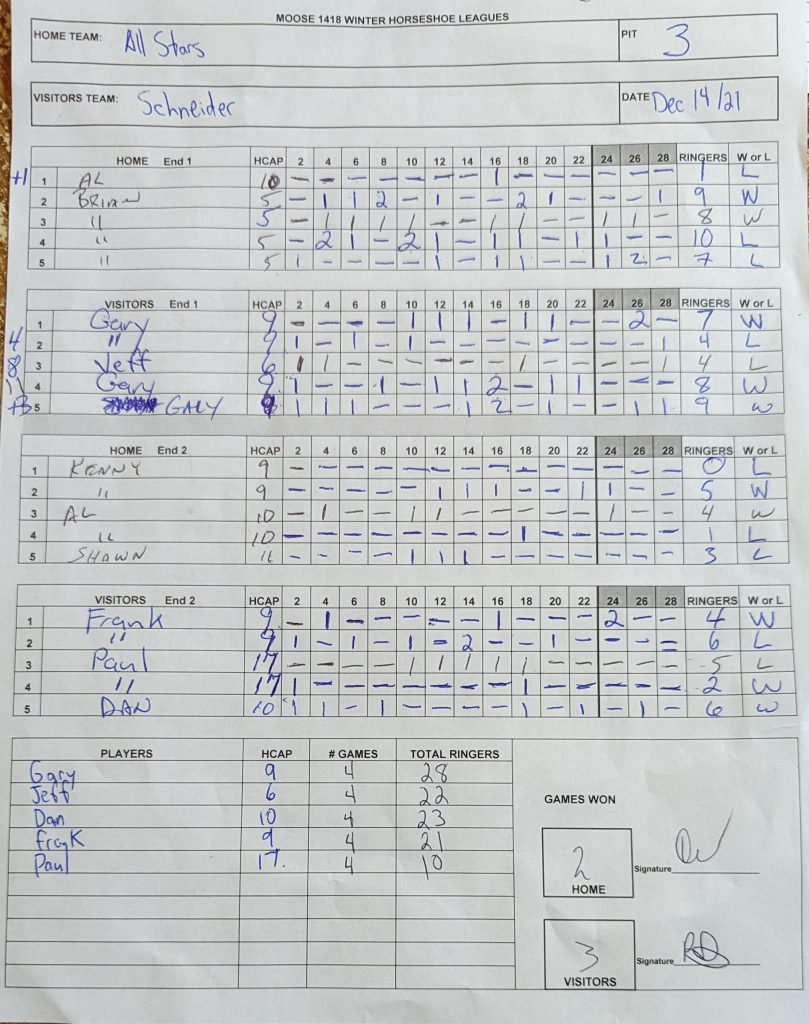 MOOSE 1418 WINTER HORSESHOE LEAGUES
HOME TEAM: All Stars PIT 3
VISITORS TEAM: Schneider DATE Dec 14/21
HOME End 1 HCAP 2 4 6 8 10 12 14 16 18 20 22 24 26 28 RINGERS W or L
+1 1 AL 10 — — — — — — — 1 — — — — — — 1 L
2 BRIAN 5 — 1 1 2 — 1 — — 2 1 — — — 1 9 W
3 " 5 — 1 1 1 1 — — 1 1 — — 1 1 — 8 W
4 " 5 — 2 1 — 2 1 — 1 1 — 1 1 — — 10 L
5 " 5 1 — — — — 1 — 1 1 — — 1 2 — 7 L
VISITORS End 1 HCAP 2 4 6 8 10 12 14 16 18 20 22 24 26 28 RINGERS W or L
1 Gary 9 — — — — 1 1 1 — 1 1 — — 2 — 7 W
4 2 " 9 1 — 1 — 1 — — — — — — — — 1 4 L
8 3 Jeff 6 1 1 — — — — — — 1 — — — — 1 4 L
4 Gary 9 1 — — 1 — 1 1 2 — 1 1 — — — 8 W
5 GARY 1 1 1 — — — 1 2 — 1 — — 1 1 9 W
HOME End 2 HCAP 2 4 6 8 10 12 14 16 18 20 22 24 26 28 RINGERS W or L
1 KENNY 9 — — — — — — — — — — — — — — 0 L
2 " 9 — — — — — 1 1 1 — — 1 1 — — 5 W
3 AL 10 — 1 — — 1 1 — — — — — 1 — — 4 W
4 " 10 — — — — — — — — 1 — — — — — 1 L
5 SHAWN 11 — — — — 1 1 1 — — — — — — — 3 L
VISITORS End 2 HCAP 2 4 6 8 10 12 14 16 18 20 22 24 26 28 RINGERS W or L
1 Frank 9 — 1 — — — — — 1 — — — 2 — — 4 W
2 " 9 1 — 1 — 1 — 2 — — 1 — — — — 6 L
3 Paul 17 — — — — 1 1 1 1 1 — — — — — 5 L
4 " 17 1 — — — — — — — 1 — — — — — 2 W
5 DAN 10 1 1 — 1 — — — — 1 — 1 — 1 — 6 W
PLAYERS HCAP # GAMES TOTAL RINGERS
Gary 9 4 28
Jeff 6 4 22
Dan 10 4 23
Frank 9 4 21
Paul 17. 4 10
GAMES WON
2 HOME Signature
3 VISITORS Signature